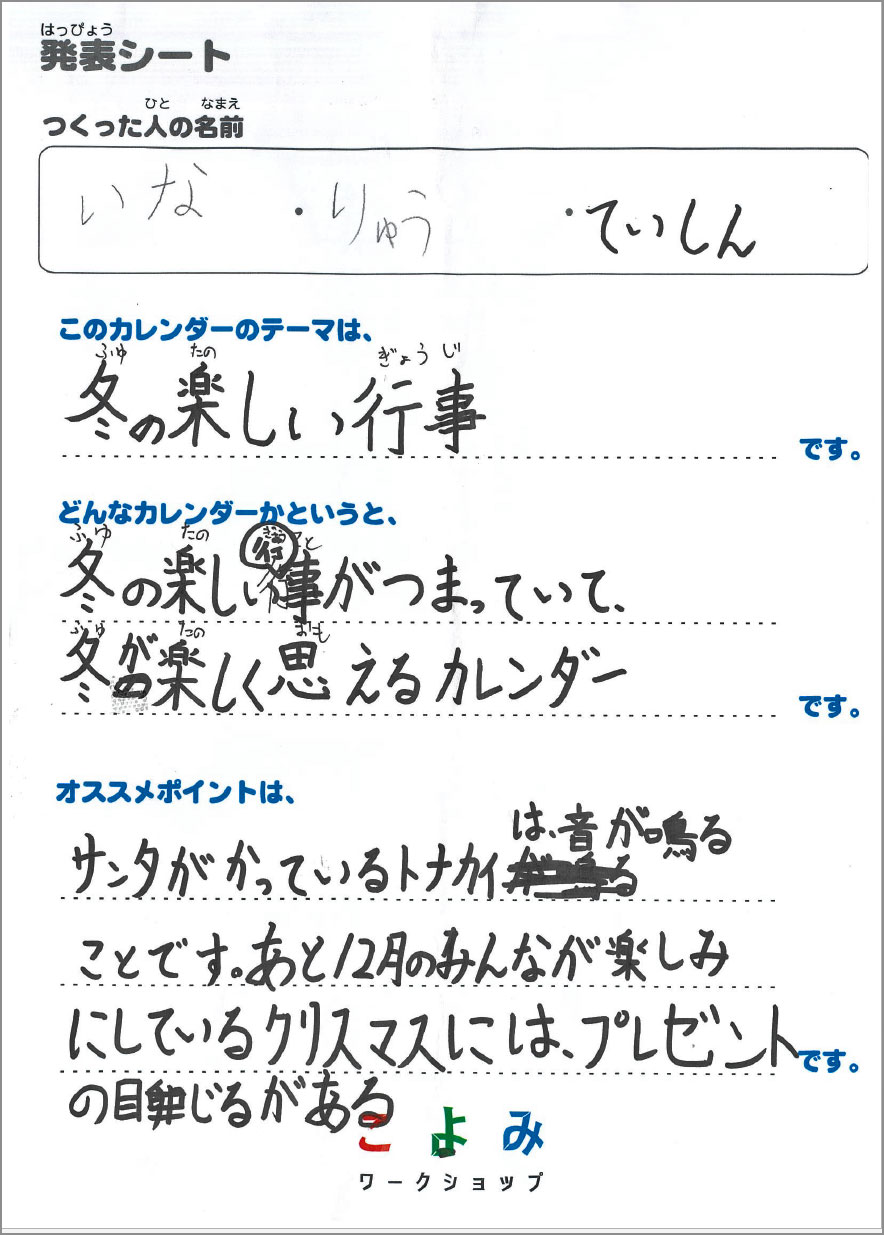 はっぴょう
発表シート
ひと なまえ
つくった人の名前
いな ・りゅう ・ていしん
このカレンダーのテーマは、
ふゆ たの ぎょうじ
冬の楽しい行事
です。
どんなカレンダーかというと、
ふゆ たの ぎょう こと
冬の楽しい行事がつまっていて、
ふゆ たの おも
冬が楽しく思えるカレンダー
です。
オススメポイントは、
は、音が鳴る
サンタがかっているトナカイ
ことです。あと12月のみんなが楽しみ
にしているクリスマスには、プレゼント
です。
の目じるがある
こよみ
ワークショップ